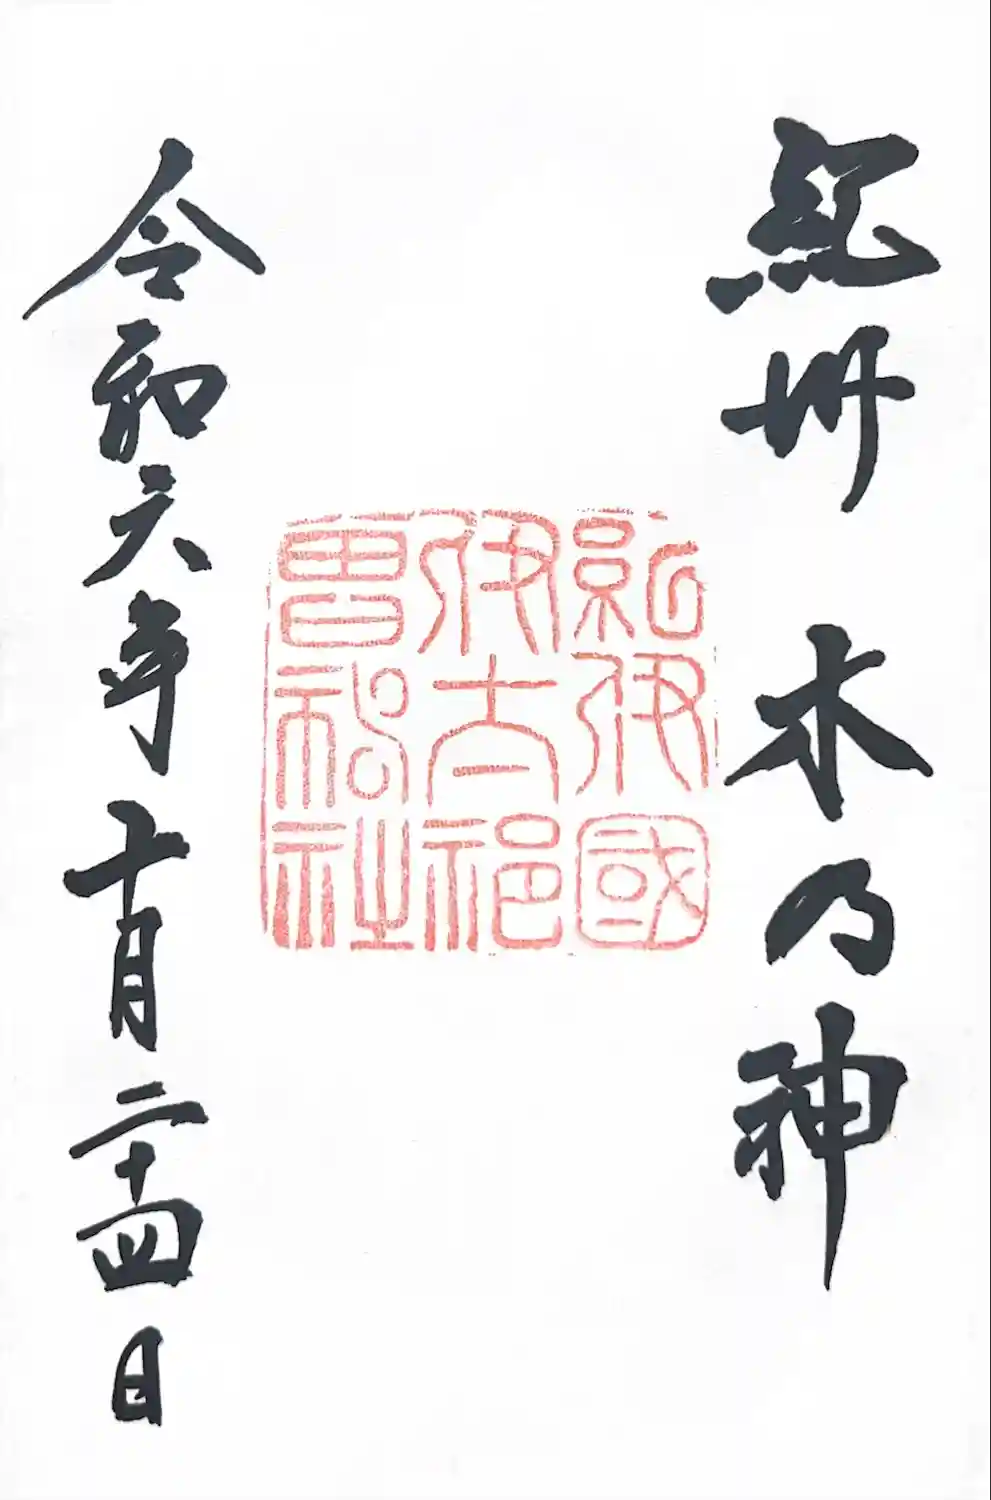 紀州 木乃神
紀伊國
伊太祁
曽神社
令和六年十月二十四日